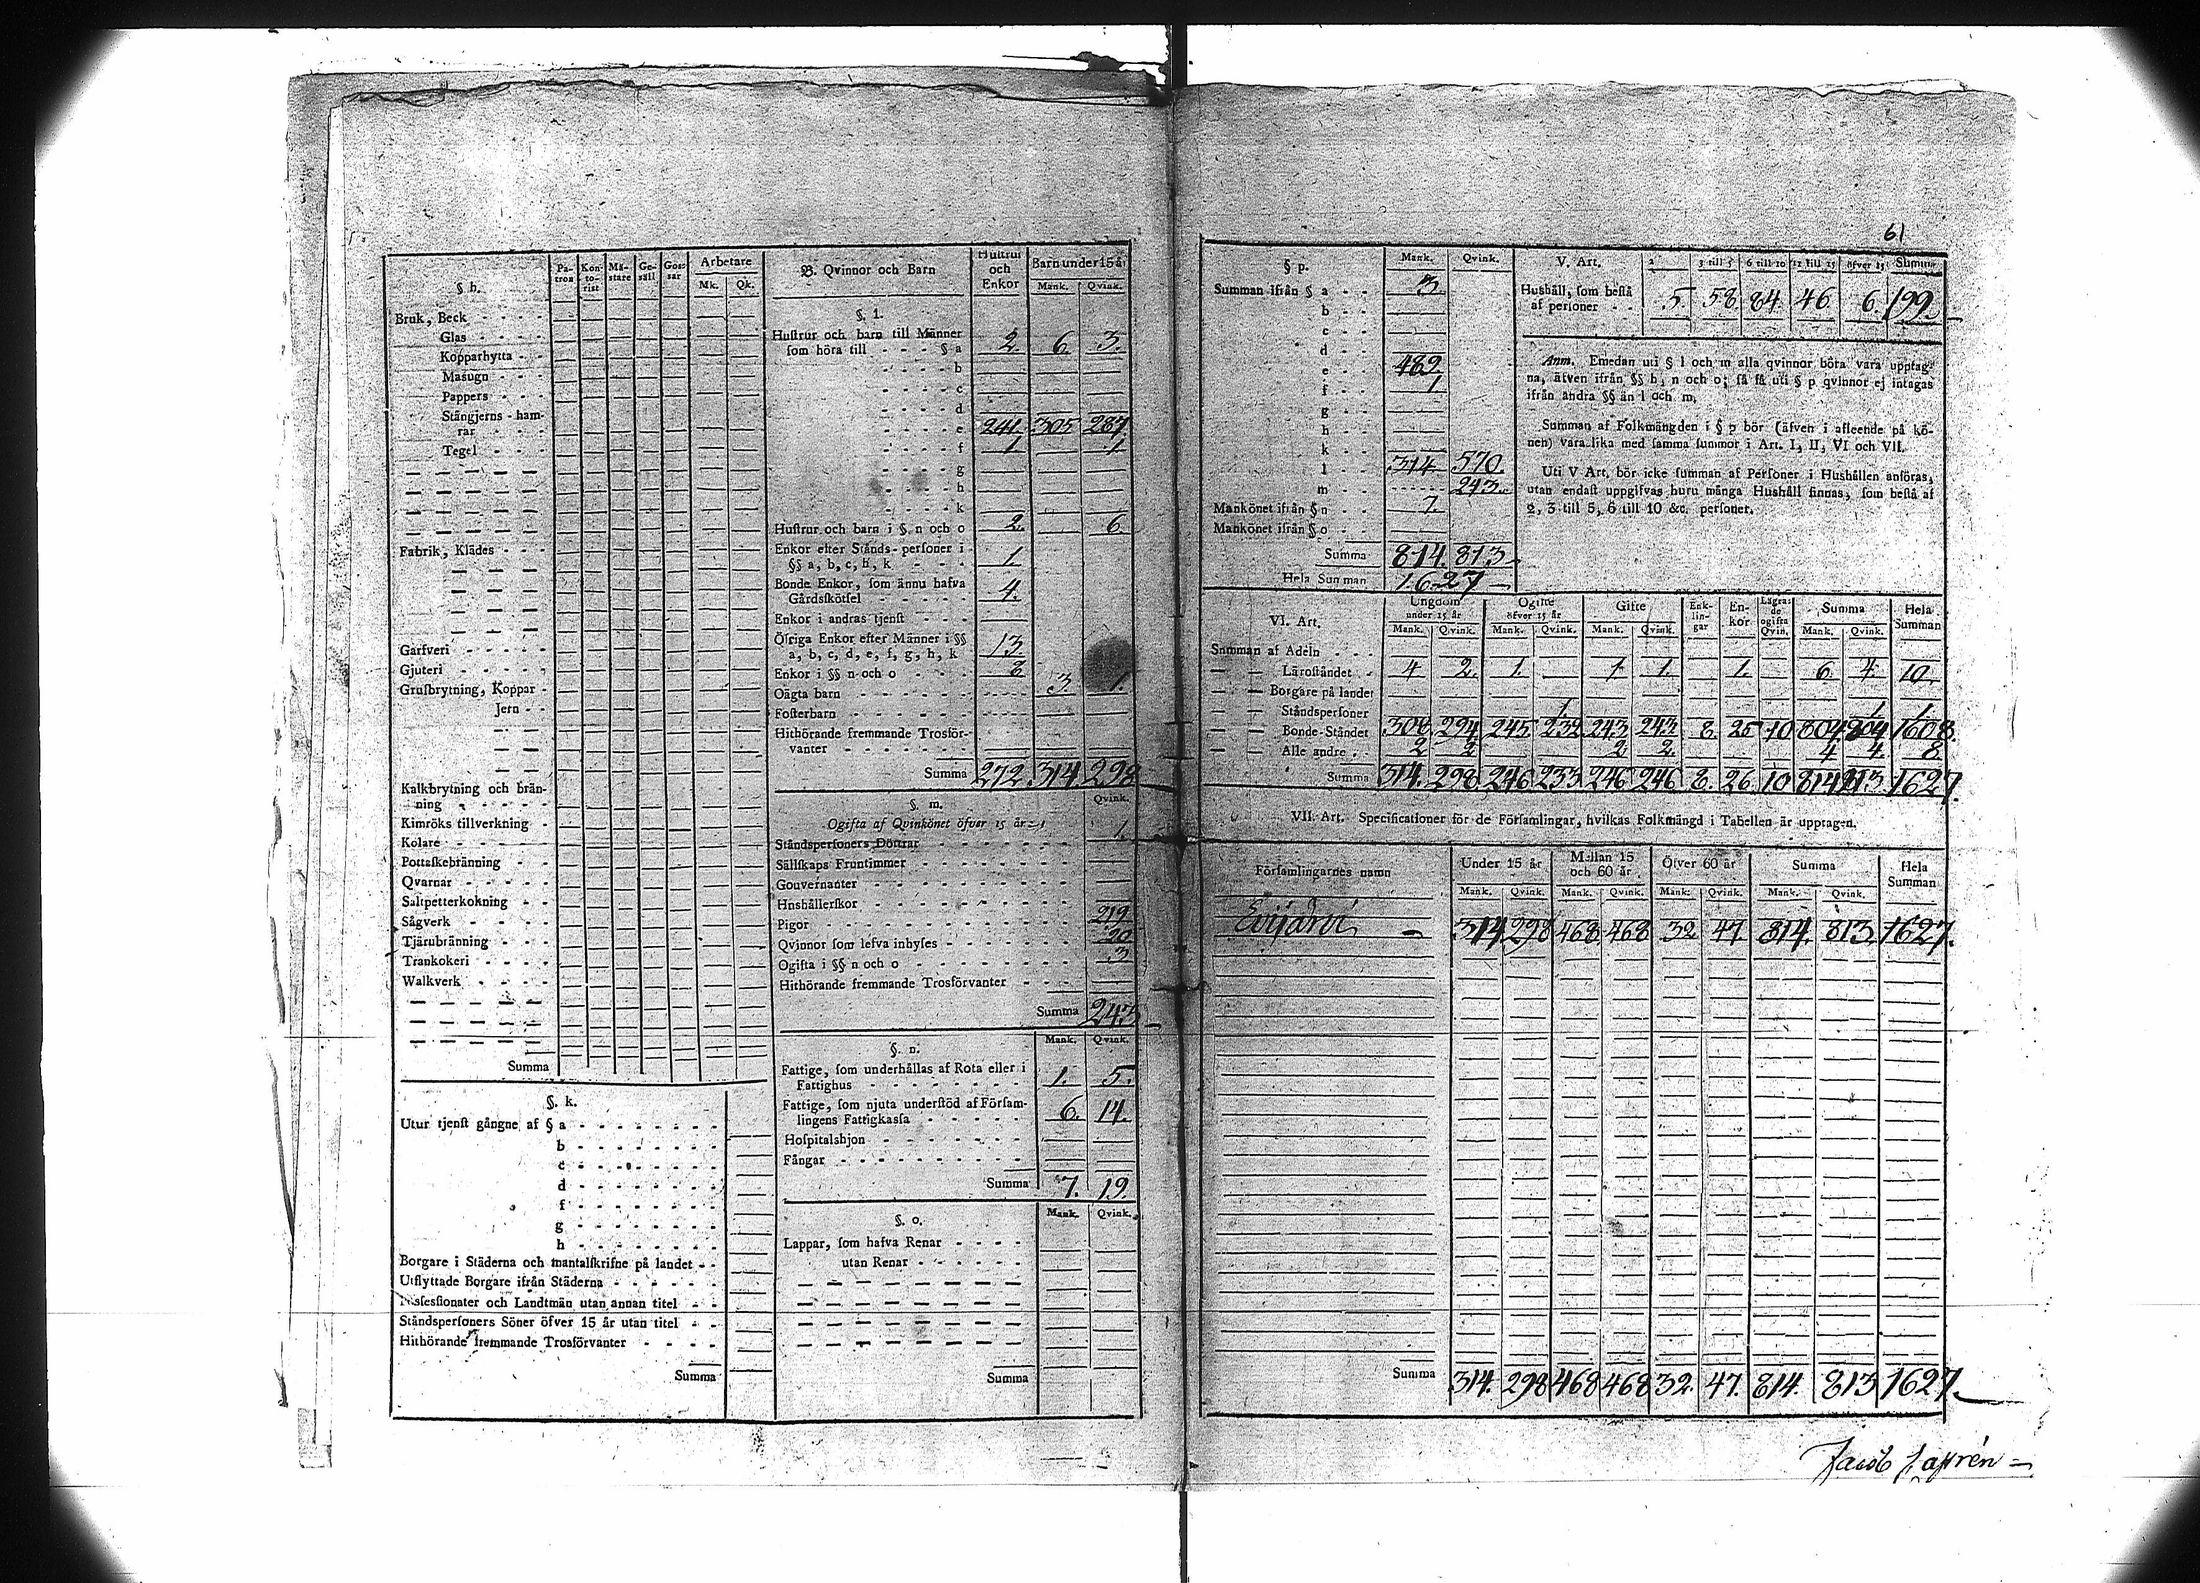 61
§ h.
Pa-
tron
Kon-
to-
rist
Mä-
stare
Ge-
säll
Gos-
sar
Arbetare
Mk. Qk.
Bruk, Beck - - - -
Glas - - - -
Kopparhytta - -
Masugn - - -
Pappers - - -
Stångjerns-ham-
rar - - -
Tegel - - -
Fabrik, Klädes - - -
Garfveri - - - - -
Gjuteri - - - - -
Grufbrytning, Koppar -
Jern - -
Kalkbrytning och brän-
ning - - - - -
Kimröks tillverkning -
Kolare - - - - -
Pottaskebränning - -
Qvarnar - - - - -
Saltpetterkokning - -
Sågverk - - - - -
Tjärubränning - - -
Trankokeri - - - -
Walkverk - - - -
Summa
§. k.
Utur tjenst gångne af § a - - - - - - -
b - - - - - - -
c - - - - - - -
d - - - - - - -
f - - - - - - -
g - - - - - - -
h - - - - - - -
Borgare i Städerna och mantalskrifne på landet - -
Utflyttade Borgare ifrån Städerna - - - - -
Possessionater och Landtmän utan annan titel - -
Ståndspersoners Söner öfver 15 år utan titel - -
Hithörande fremmande Trosförvanter - - - -
Summa
B. Qvinnor och Barn
Hustrur
och
Enkor
Barn under 15 år
Mank. Qvink.
§. l.
Hustrur och barn till Männer
som höra till - - - § a 2. 6. 3.
- - - - b
- - - - c
- - - - d
- - - - e 241. 305 287
- - - - f 1. 1
- - - - g
- - - - h
- - - - k
Hustrur och barn i §. n och o 2. 6
Enkor efter Stånds-personer i
§§ a, b, c, h, k - - - 1.
Bonde Enkor, som ännu hafva
Gårdsskötsel - - - - - 4.
Enkor i andras tjenst - - -
Öfriga Enkor efter Männer i §§
a, b, c, d, e, f, g, h, k 13
Enkor i §§ n och o - - - - 8
Oägta barn - - - - - - 3. 1.
Fosterbarn - - - - - -
Hithörande fremmande Trosför-
vanter - - - - - - -
Summa 272. 314. 298
§. m.
Qvink.
Ogifta af Qvinkönet öfver 15 år
Ståndspersoners Döttrar - - - - - - - 1.
Sällskaps Fruntimmer - - - - - - -
Gouvernanter - - - - - - - - -
Hushållerskor - - - - - - - - -
Pigor - - - - - - - - - - - 219
Qvinnor som lefva inhyses - - - - - - 20
Ogifta i §§ n och o - - - - - - - - 3
Hithörande fremmande Trosförvanter - - -
Summa 243
§. n.
Mank. Qvink.
Fattige, som underhållas af Rota eller i
Fattighus - - - - - - - 1. 5.
Fattige, som njuta understöd af Försam-
lingens Fattigkassa - - - - - 6. 14.
Hospitalshjon - - - - - - -
Fångar - - - - - - - - -
Summa 7. 19.
§. o.
Mank. Qvink.
Lappar, som hafva Renar - - - -
utan Renar - - - - - -
Summa
§ p.
Mank. Qvink.
Summan ifrån § a - - 3
b - -
c - -
d - -
e - - 489
f - - 1
g - -
h - -
k - -
l - - 314 570.
m - - 243
Mankönet ifrån § n - - 7.
Mankönet ifrån § o - -
Summa 814. 813
Hela Summan 1627
V. Art.
2 3 till 5 6 till 10 11 till 15 öfver 15 Summa
Hushåll, som bestå
af personer - - 5 58 84 46 6. 199.
Anm. Emedan uti § l och m alla qvinnor böra vara upptag-
na, äfven ifrån §§ h, n och o; så få uti § p qvinnor ej intagas
ifrån andra §§ än l och m.
Summan af Folkmängden i § p bör (äfven i afseende på kö-
nen) vara lika med samma summor i Art. I, II, VI och VII.
Uti V Art. bör icke summan af Personer i Hushållen anföras,
utan endast uppgifvas huru många Hushåll finnas, som bestå af
2, 3 till 5, 6 till 10 &c. personer.
VI. Art.
Ungdom
under 15 år
Ogifte
öfver 15 år
Gifte
Enk-
lin-
gar
En-
kor
Lägra-
de
ogifta
Qvin.
Summa
Hela
Summan
Mank. Qvink. Mank. Qvink. Mank. Qvink. Mank. Qvink.
Summan af Adeln - - -
Läroståndet - 4 2. 1. 1 1. 1. 6. 4. 10
Borgare på landet
Ståndspersoner 1. 1 1
Bonde-Ståndet 308 294 245 232 243 243 8. 25 10 804 804 1608.
Alle andre - - 2 2 2 2. 4 4. 8
Summa 314. 298 246 233 246 246 8. 26 10 814 813. 1627.
VII. Art. Specificationer för de Församlingar, hvilkas Folkmängd i Tabellen är upptagen.
Församlingarnes namn
Under 15 år
Mellan 15
och 60 år
Öfver 60 år
Summa
Hela
Summan
Mank. Qvink. Mank. Qvink. Mank. Qvink. Mank. Qvink.
Evijärvi 314 298 468 468 32 47. 814. 813 1627.
Summa 314. 298 468 468 32. 47. 814. 813 1627.
Jacob